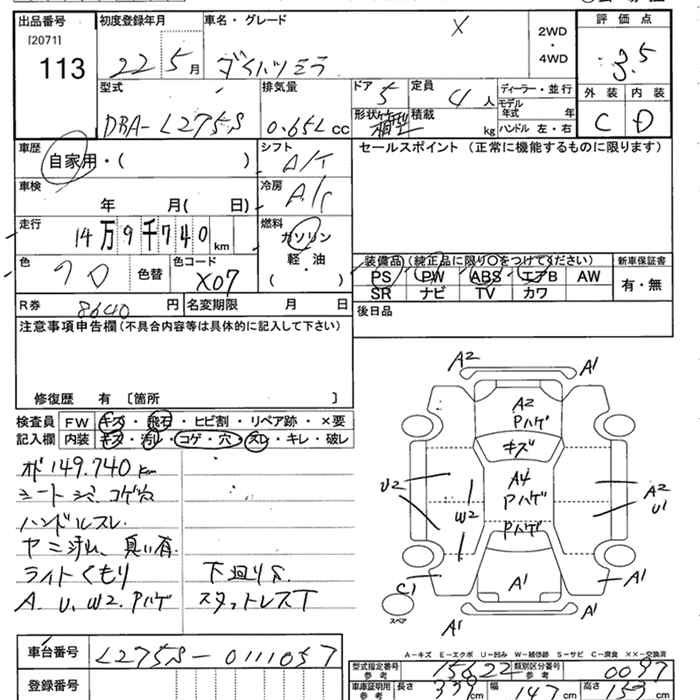 出品番号 初度登録年月 車名・グレード 2WD ・ 4WD 評価点
[2071]
113 22年 5月 ダイハツミラ X 3.5
型式 排気量 ドア 5 定員 4人 ディーラー・並行 外装 内装
モデル年式 年
DBA-L275S 0.65L cc 形状 箱型 積載 kg ハンドル 左・右 C D
車歴 自家用・( ) シフト A/T セールスポイント (正常に機能するものに限ります)
車検 年 月( 日) 冷房 A/C
走行 14万9千740km 燃料 ガソリン
軽・油
( )
色 クロ 色替 色コード X07
装備品 (純正品に限り○をつけてください) 新車保証書
PS PW ABS エアB AW 有・無
SR ナビ TV カワ
R券 8640円 名変期限 月 日 後日品
注意事項申告欄(不具合内容等は具体的に記入して下さい)
修復歴 有 [箇所 ]
検査員 FW キズ・飛石・ヒビ割・リペア跡・×要
記入欄 内装 キズ・汚レ・コゲ・穴・スレ・キレ・破レ
オド149.740Km
シート シミ、コゲ穴
ハンドルスレ
ヤニ汚れ、臭い有
ライトくもり 下回りS
A、U、W2、Pハゲ スタットレスT
A2 A1
A2
Pハゲ
キズ
A4
Pハゲ
Pハゲ
U2 W2 A2
U1
C1 A1 A1
スペア
A1
A-キズ E-エクボ U-凹み W-補修跡 S-サビ C-腐食 ××-交換済
車台番号 L275S-0111057
登録番号
型式指定番号 参考 15622 類別区分番号 参考 0097
車庫証明用 参考 長さ 339cm 幅 147cm 高さ 153cm